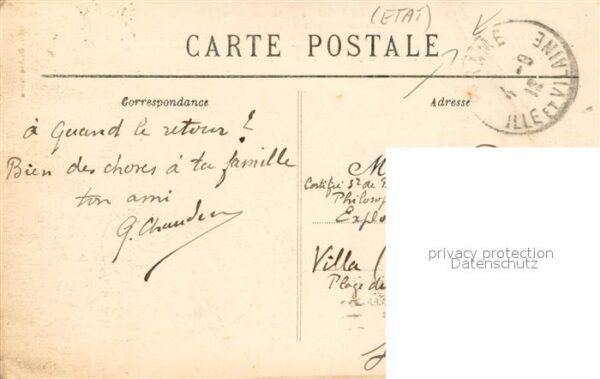 (ETAT)
CARTE POSTALE
ILLE ET VILAINE
Correspondance
Adresse
à quand le retour ?
Bien des choses à ta famille
ton ami
M
Certifié
Philosop
Explo
Villa (
Plage de
privacy protection
Datenschutz